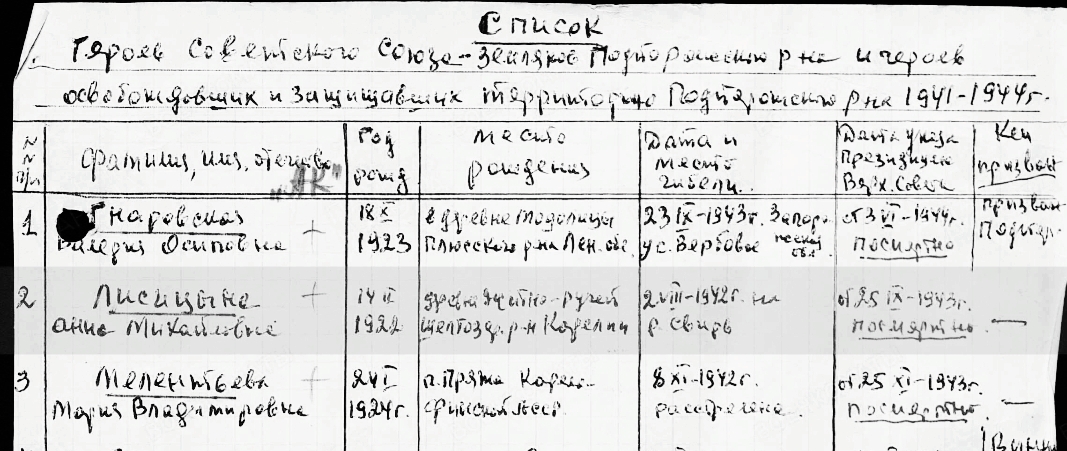 Список
Героев Советского Союза - земляков Подпорожского р-на и героев
освобождавших и защищавших территорию Подпорожского р-на 1941-1944г.
№№ п/п
Фамилия, имя, отчество
Год рожд
Место рождения
Дата и место гибели.
Дата указа Президиума Верх. Совета
Кем призван
"АК"
1 Гнаровская + 18 X в деревне Модолицы 23 IX-1943г. Запорожской обл. от 3 VI-1944г. призван
Валерия Осиповна 1923 Плюсского р-на Лен. обл. ус. Вербовое посмертно Подпор.
2 Лисицына + 14 II деревня Житно-Ручей 2 VIII-1942г. на от 25 IX-1943г.
Анна Михайловна 1922 Шелтозер. р-н Карелии р. Свирь посмертно. —
3 Мелентьева + 24 I п. Пряжа Карело- 8 XI-1942г. от 25 XI-1943г.
Мария Владимировна 1924г. Финской АССР расстреляна. посмертно. —